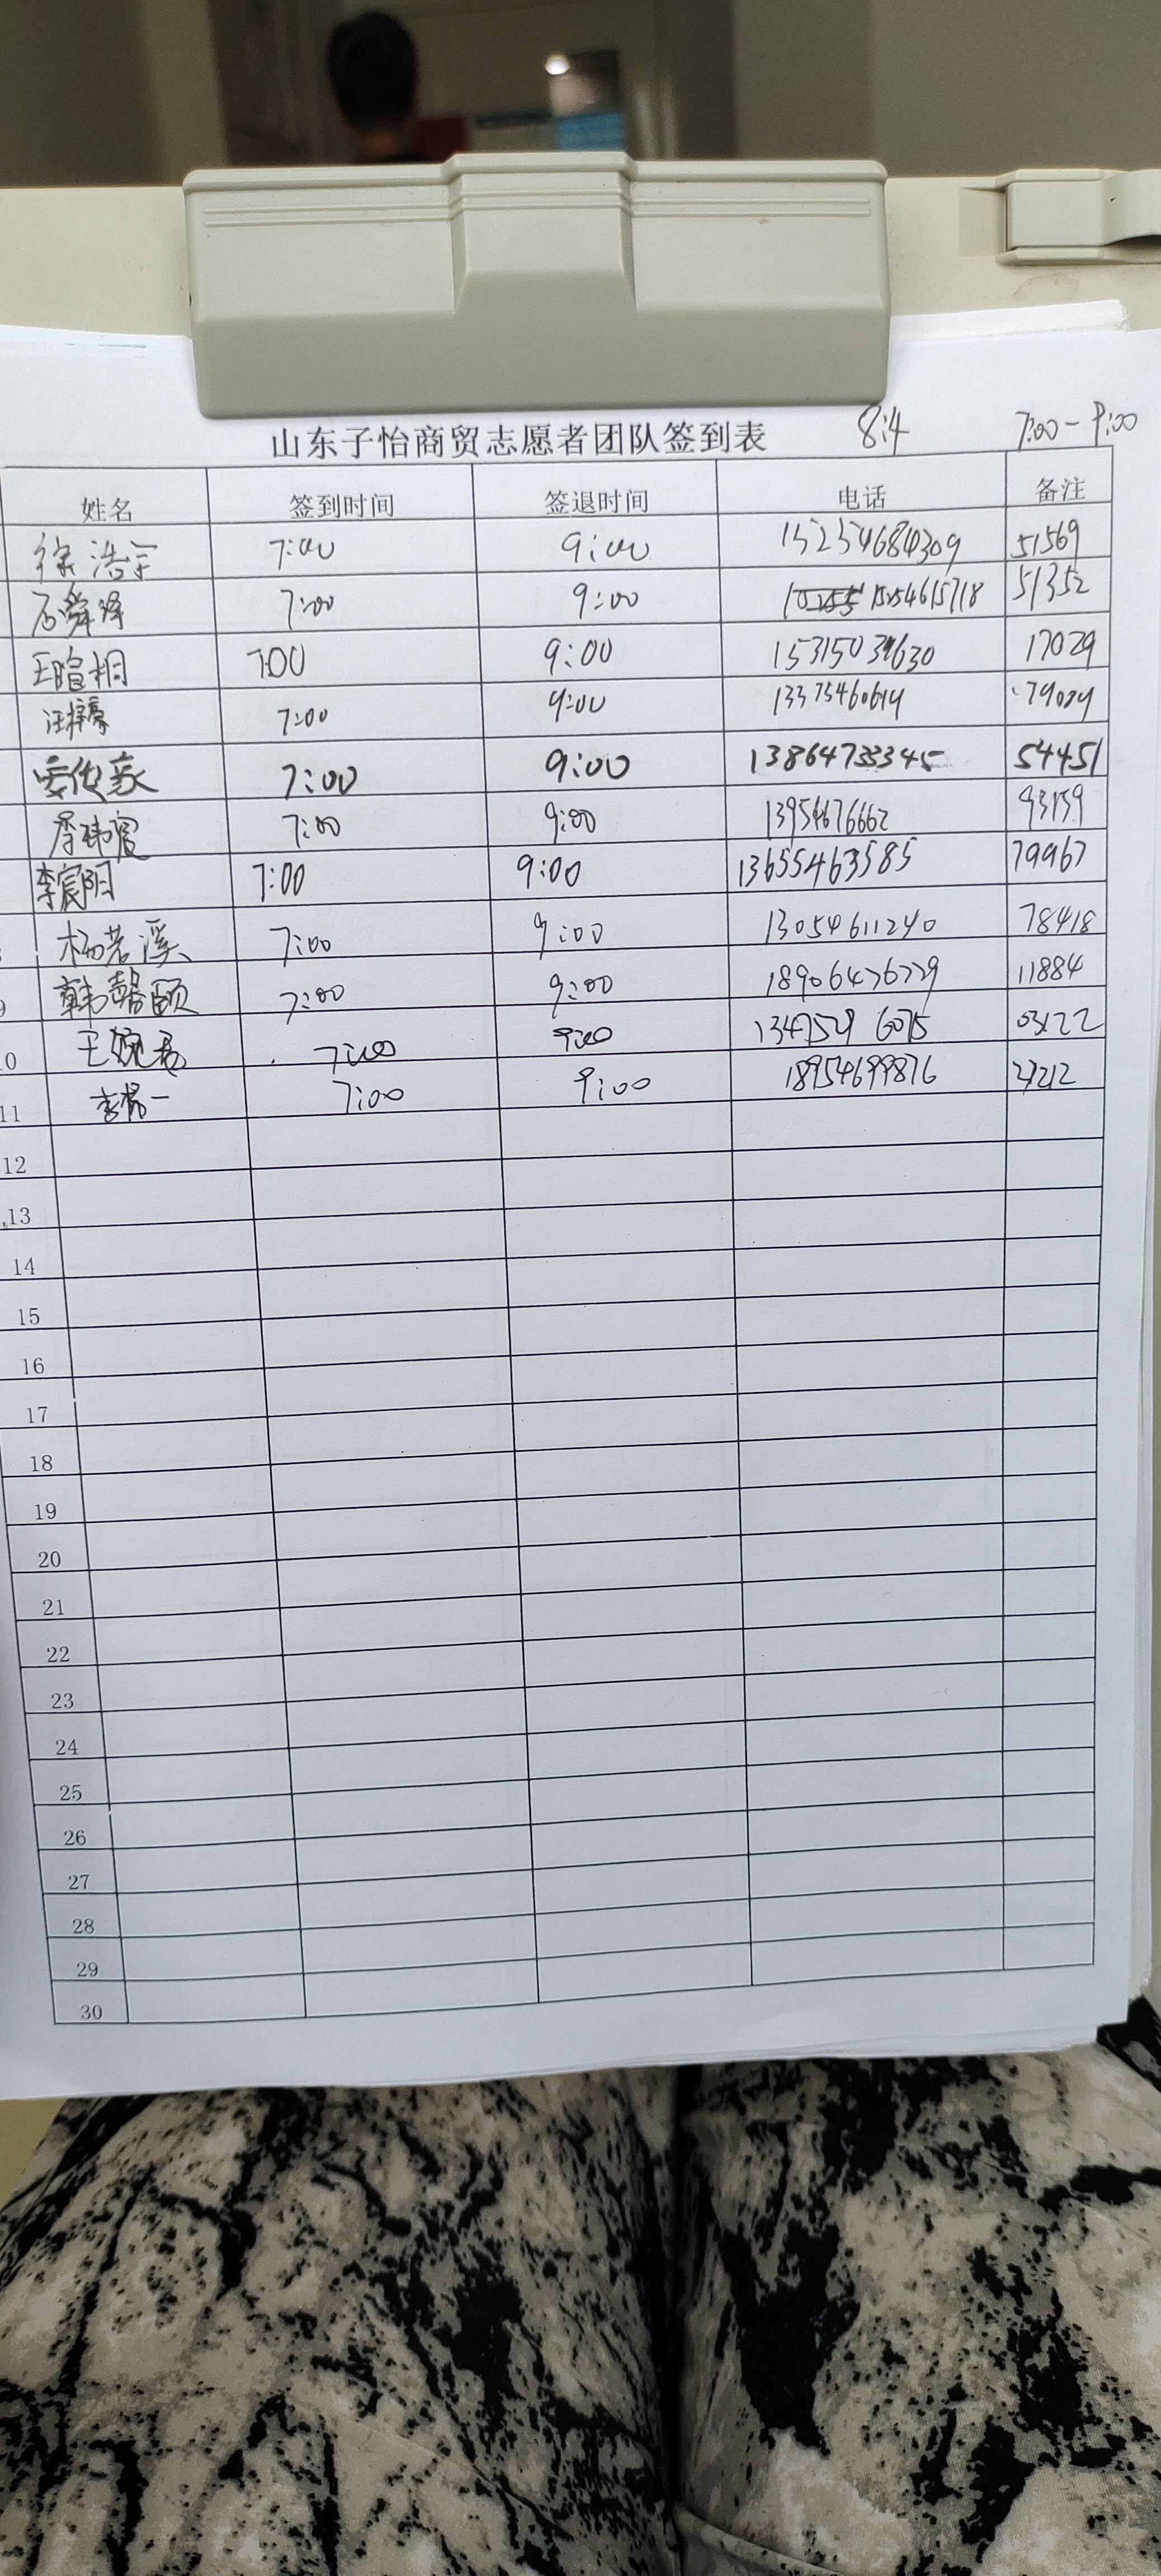 山东子怡商贸志愿者团队签到表 8:4 7:00-9:00
姓名 签到时间 签退时间 电话 备注
徐浩宇 7:00 9:00 15254684309 51569
石舜泽 7:00 9:00 15254615718 51352
王暄桐 7:00 9:00 17029
汪梓豪 7:00 9:00 13375460614 79024
7:00 9:00 54451
7:00 9:00 13954676662 93159
李宸阳 7:00 9:00 13655463585 79967
8 杨若溪 7:00 9:00 13054611240 78418
9 韩馨颐 7:00 9:00 18906476779 11884
10 王婉君 7:00 9:00 13475296075 03122
11 李梦一 7:00 9:00 18954699876
12
13
14
15
16
17
18
19
20
21
22
23
24
25
26
27
28
29
30